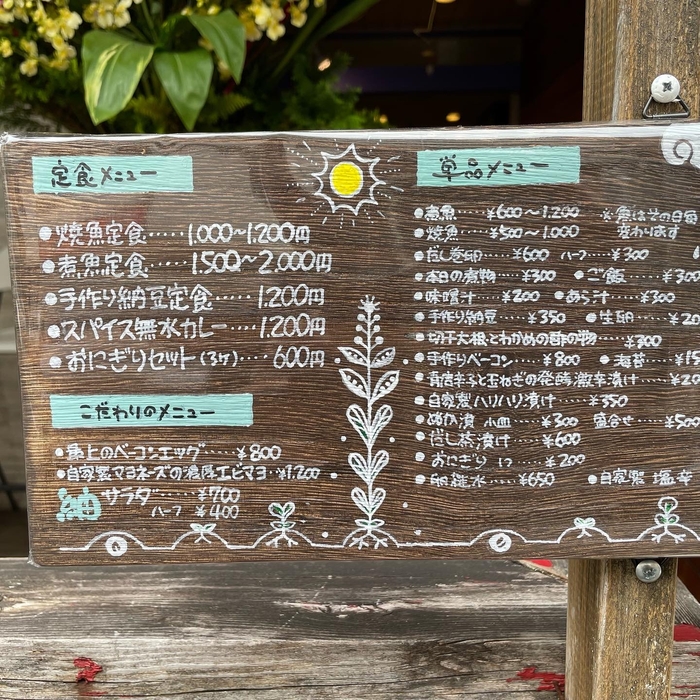 定食メニュー
●焼魚定食‥‥‥1,000〜1,200円
●煮魚定食‥‥‥1,500〜2,000円
●手作り納豆定食‥‥‥1,200円
●スパイス無水カレー‥‥1,200円
●おにぎりセット(3ケ)‥‥600円
こだわりのメニュー
●極上のベーコンエッグ‥‥‥¥800
●自家製マヨネーズの濃厚エビマヨ‥¥1,200
サラダ‥‥‥¥700
ハーフ ¥400
単品メニュー
●煮魚‥‥¥600〜1,200 ※魚はその日
●焼魚‥‥¥500〜1,000 変わります
●だし巻卵‥‥‥¥600 ハーフ‥‥¥300
●本日の煮物‥‥¥300 ●ご飯‥‥¥300
●味噌汁‥‥‥¥200 ●あら汁‥‥¥300
●手作り納豆‥‥‥¥350 ●生卵‥‥¥20
●切干大根とわかめの酢の物‥‥‥¥300
●手作りベーコン‥‥‥¥800 ●海苔‥‥¥15
●青唐辛子と玉ねぎの発酵激辛漬け‥‥¥20
●自家製ハリハリ漬け‥‥¥350
●ぬか漬 小皿‥‥¥300 盛合せ‥‥¥500
●だし茶漬け‥‥¥600
●おにぎり 1つ‥‥¥200
●卵雑水‥‥¥650 ●自家製 塩辛